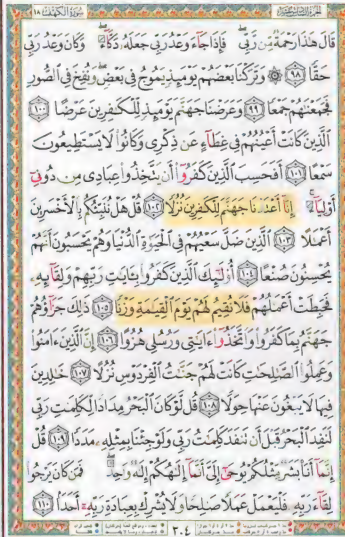 سُورَةُ الكَهْفِ ١٨
قَالَ هَٰذَا رَحْمَةٌ مِّن رَّبِّي فَإِذَا جَآءَ وَعْدُ رَبِّي جَعَلَهُۥ دَكَّآءَ وَكَانَ وَعْدُ رَبِّي
حَقًّا ٩٨ ۞ وَتَرَكْنَا بَعْضَهُمْ يَوْمَئِذٍ يَمُوجُ فِي بَعْضٍ وَنُفِخَ فِي الصُّورِ
فَجَمَعْنَٰهُمْ جَمْعًا ٩٩ وَعَرَضْنَا جَهَنَّمَ يَوْمَئِذٍ لِّلْكَٰفِرِينَ عَرْضًا ١٠٠
الَّذِينَ كَانَتْ أَعْيُنُهُمْ فِي غِطَآءٍ عَن ذِكْرِي وَكَانُوا۟ لَا يَسْتَطِيعُونَ
سَمْعًا ١٠١ أَفَحَسِبَ الَّذِينَ كَفَرُوٓا۟ أَن يَتَّخِذُوا۟ عِبَادِي مِن دُونِيٓ
أَوْلِيَآءَ إِنَّآ أَعْتَدْنَا جَهَنَّمَ لِلْكَٰفِرِينَ نُزُلًا ١٠٢ قُلْ هَلْ نُنَبِّئُكُم بِالْأَخْسَرِينَ
أَعْمَٰلًا ١٠٣ الَّذِينَ ضَلَّ سَعْيُهُمْ فِي الْحَيَوٰةِ الدُّنْيَا وَهُمْ يَحْسَبُونَ أَنَّهُمْ
يُحْسِنُونَ صُنْعًا ١٠٤ أُو۟لَٰٓئِكَ الَّذِينَ كَفَرُوا۟ بِـَٔايَٰتِ رَبِّهِمْ وَلِقَآئِهِۦ
فَحَبِطَتْ أَعْمَٰلُهُمْ فَلَا نُقِيمُ لَهُمْ يَوْمَ الْقِيَٰمَةِ وَزْنًا ١٠٥ ذَٰلِكَ جَزَآؤُهُمْ
جَهَنَّمُ بِمَا كَفَرُوا۟ وَاتَّخَذُوٓا۟ ءَايَٰتِي وَرُسُلِي هُزُوًا ١٠٦ إِنَّ الَّذِينَ ءَامَنُوا۟
وَعَمِلُوا۟ الصَّٰلِحَٰتِ كَانَتْ لَهُمْ جَنَّٰتُ الْفِرْدَوْسِ نُزُلًا ١٠٧ خَٰلِدِينَ
فِيهَا لَا يَبْغُونَ عَنْهَا حِوَلًا ١٠٨ قُل لَّوْ كَانَ الْبَحْرُ مِدَادًا لِّكَلِمَٰتِ رَبِّي
لَنَفِدَ الْبَحْرُ قَبْلَ أَن تَنفَدَ كَلِمَٰتُ رَبِّي وَلَوْ جِئْنَا بِمِثْلِهِۦ مَدَدًا ١٠٩ قُلْ
إِنَّمَآ أَنَا۠ بَشَرٌ مِّثْلُكُمْ يُوحَىٰٓ إِلَيَّ أَنَّمَآ إِلَٰهُكُمْ إِلَٰهٌ وَٰحِدٌ فَمَن كَانَ يَرْجُوا۟
لِقَآءَ رَبِّهِۦ فَلْيَعْمَلْ عَمَلًا صَٰلِحًا وَلَا يُشْرِكْ بِعِبَادَةِ رَبِّهِۦٓ أَحَدًۢا ١١٠
٣٠٤